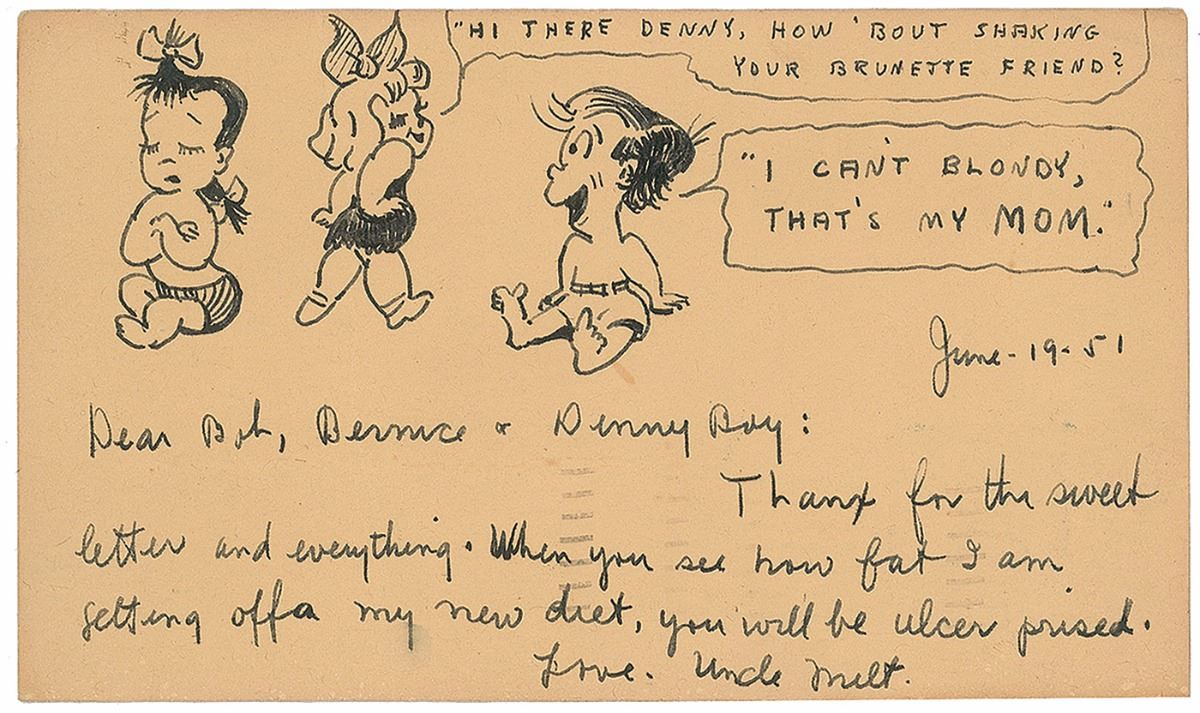 "HI THERE DENNY, HOW 'BOUT SHAKING
YOUR BRUNETTE FRIEND?
"I CAN'T BLONDY,
THAT'S MY MOM."
June-19-51
Dear Bob, Bernice & Denny Boy:
Thanx for the sweet
letter and everything. When you see how fat I am
getting offa my new diet, you will be ulcer prised.
Love. Uncle Milt.